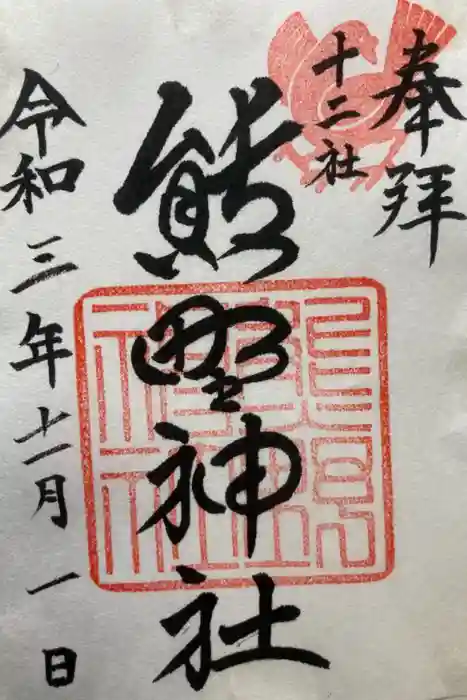 奉拝
十二社
熊野神社
令和三年十一月一日